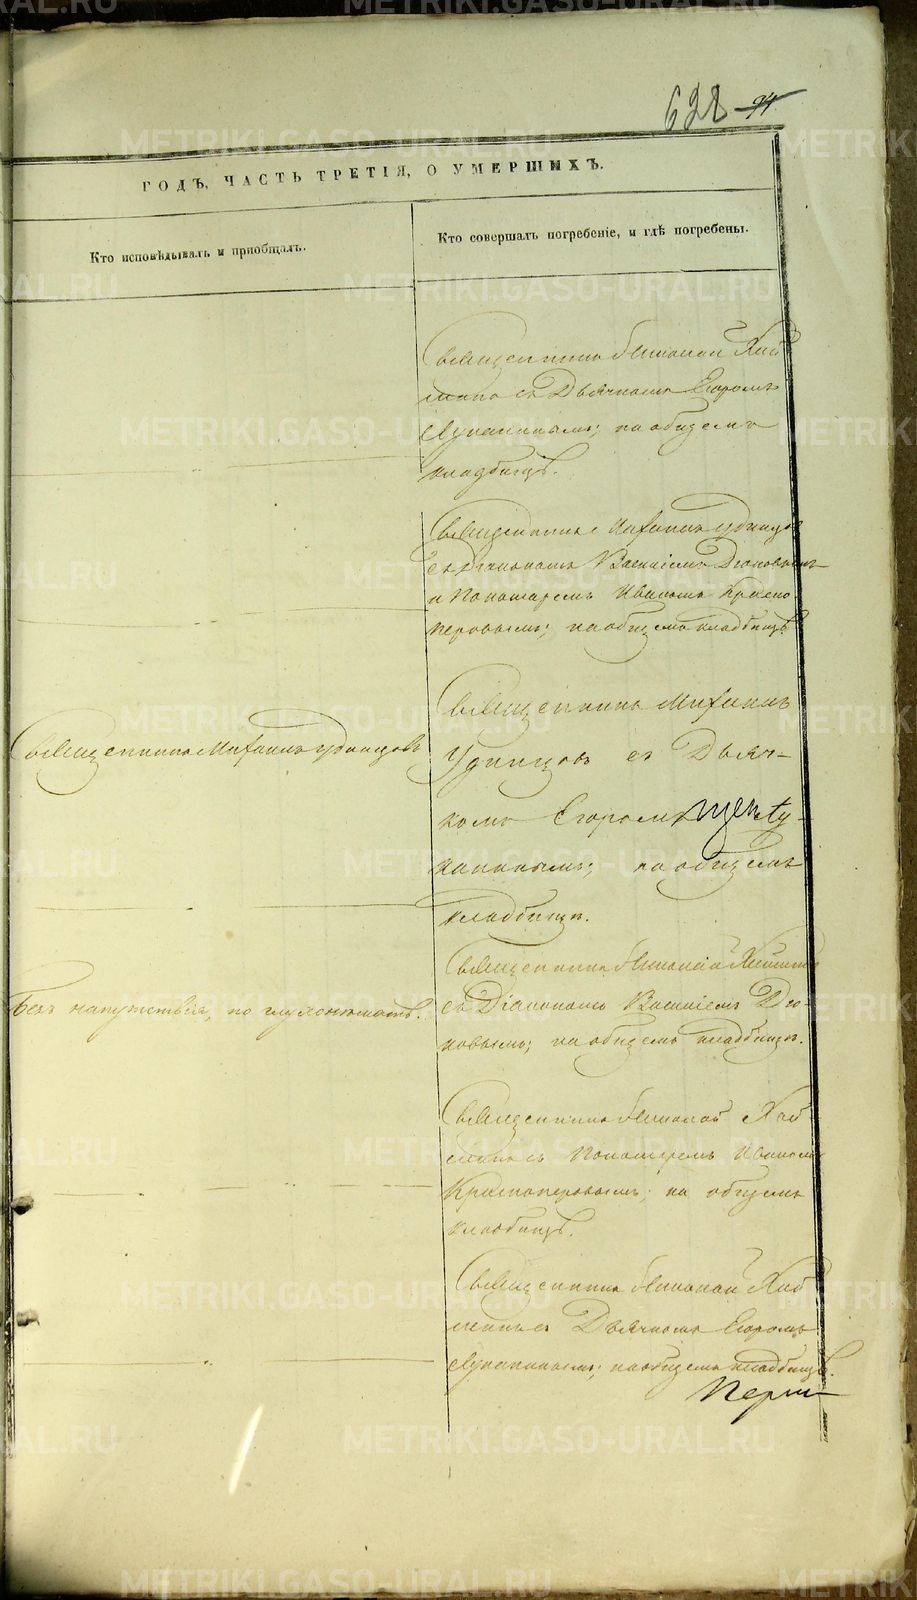 628 94.
ГОДЪ, ЧАСТЬ ТРЕТІЯ, О УМЕРШИХЪ.
Кто исповѣдывалъ и пріобщалъ.
Кто совершалъ погребеніе, и гдѣ погребены.
Священникъ Николай
съ Дьячкомъ Егоромъ
Лупанинымъ; на общемъ
кладбищѣ.
Священникъ Михаилъ Удинцовъ
съ Діакономъ Василіемъ
и Пономаремъ Иваномъ Красно
перовымъ; на общемъ кладбищѣ.
Священникъ Михаилъ Удинцовъ
Священникъ Михаилъ
Удинцовъ съ Дьяч-
комъ Егоромъ Лу-
панинымъ; на общемъ
кладбищѣ.
Безъ напутствія, по глухонѣмотѣ.
Священникъ Николай
съ Діакономъ Василіемъ
новымъ; на общемъ кладбищѣ.
Священникъ Николай
съ Пономаремъ Иваномъ
Красноперовымъ; на общемъ
кладбищѣ.
Священникъ Николай
съ Дьячкомъ Егоромъ
Лупанинымъ; на общемъ кладбищѣ.
METRIKI.GASO-URAL.RU